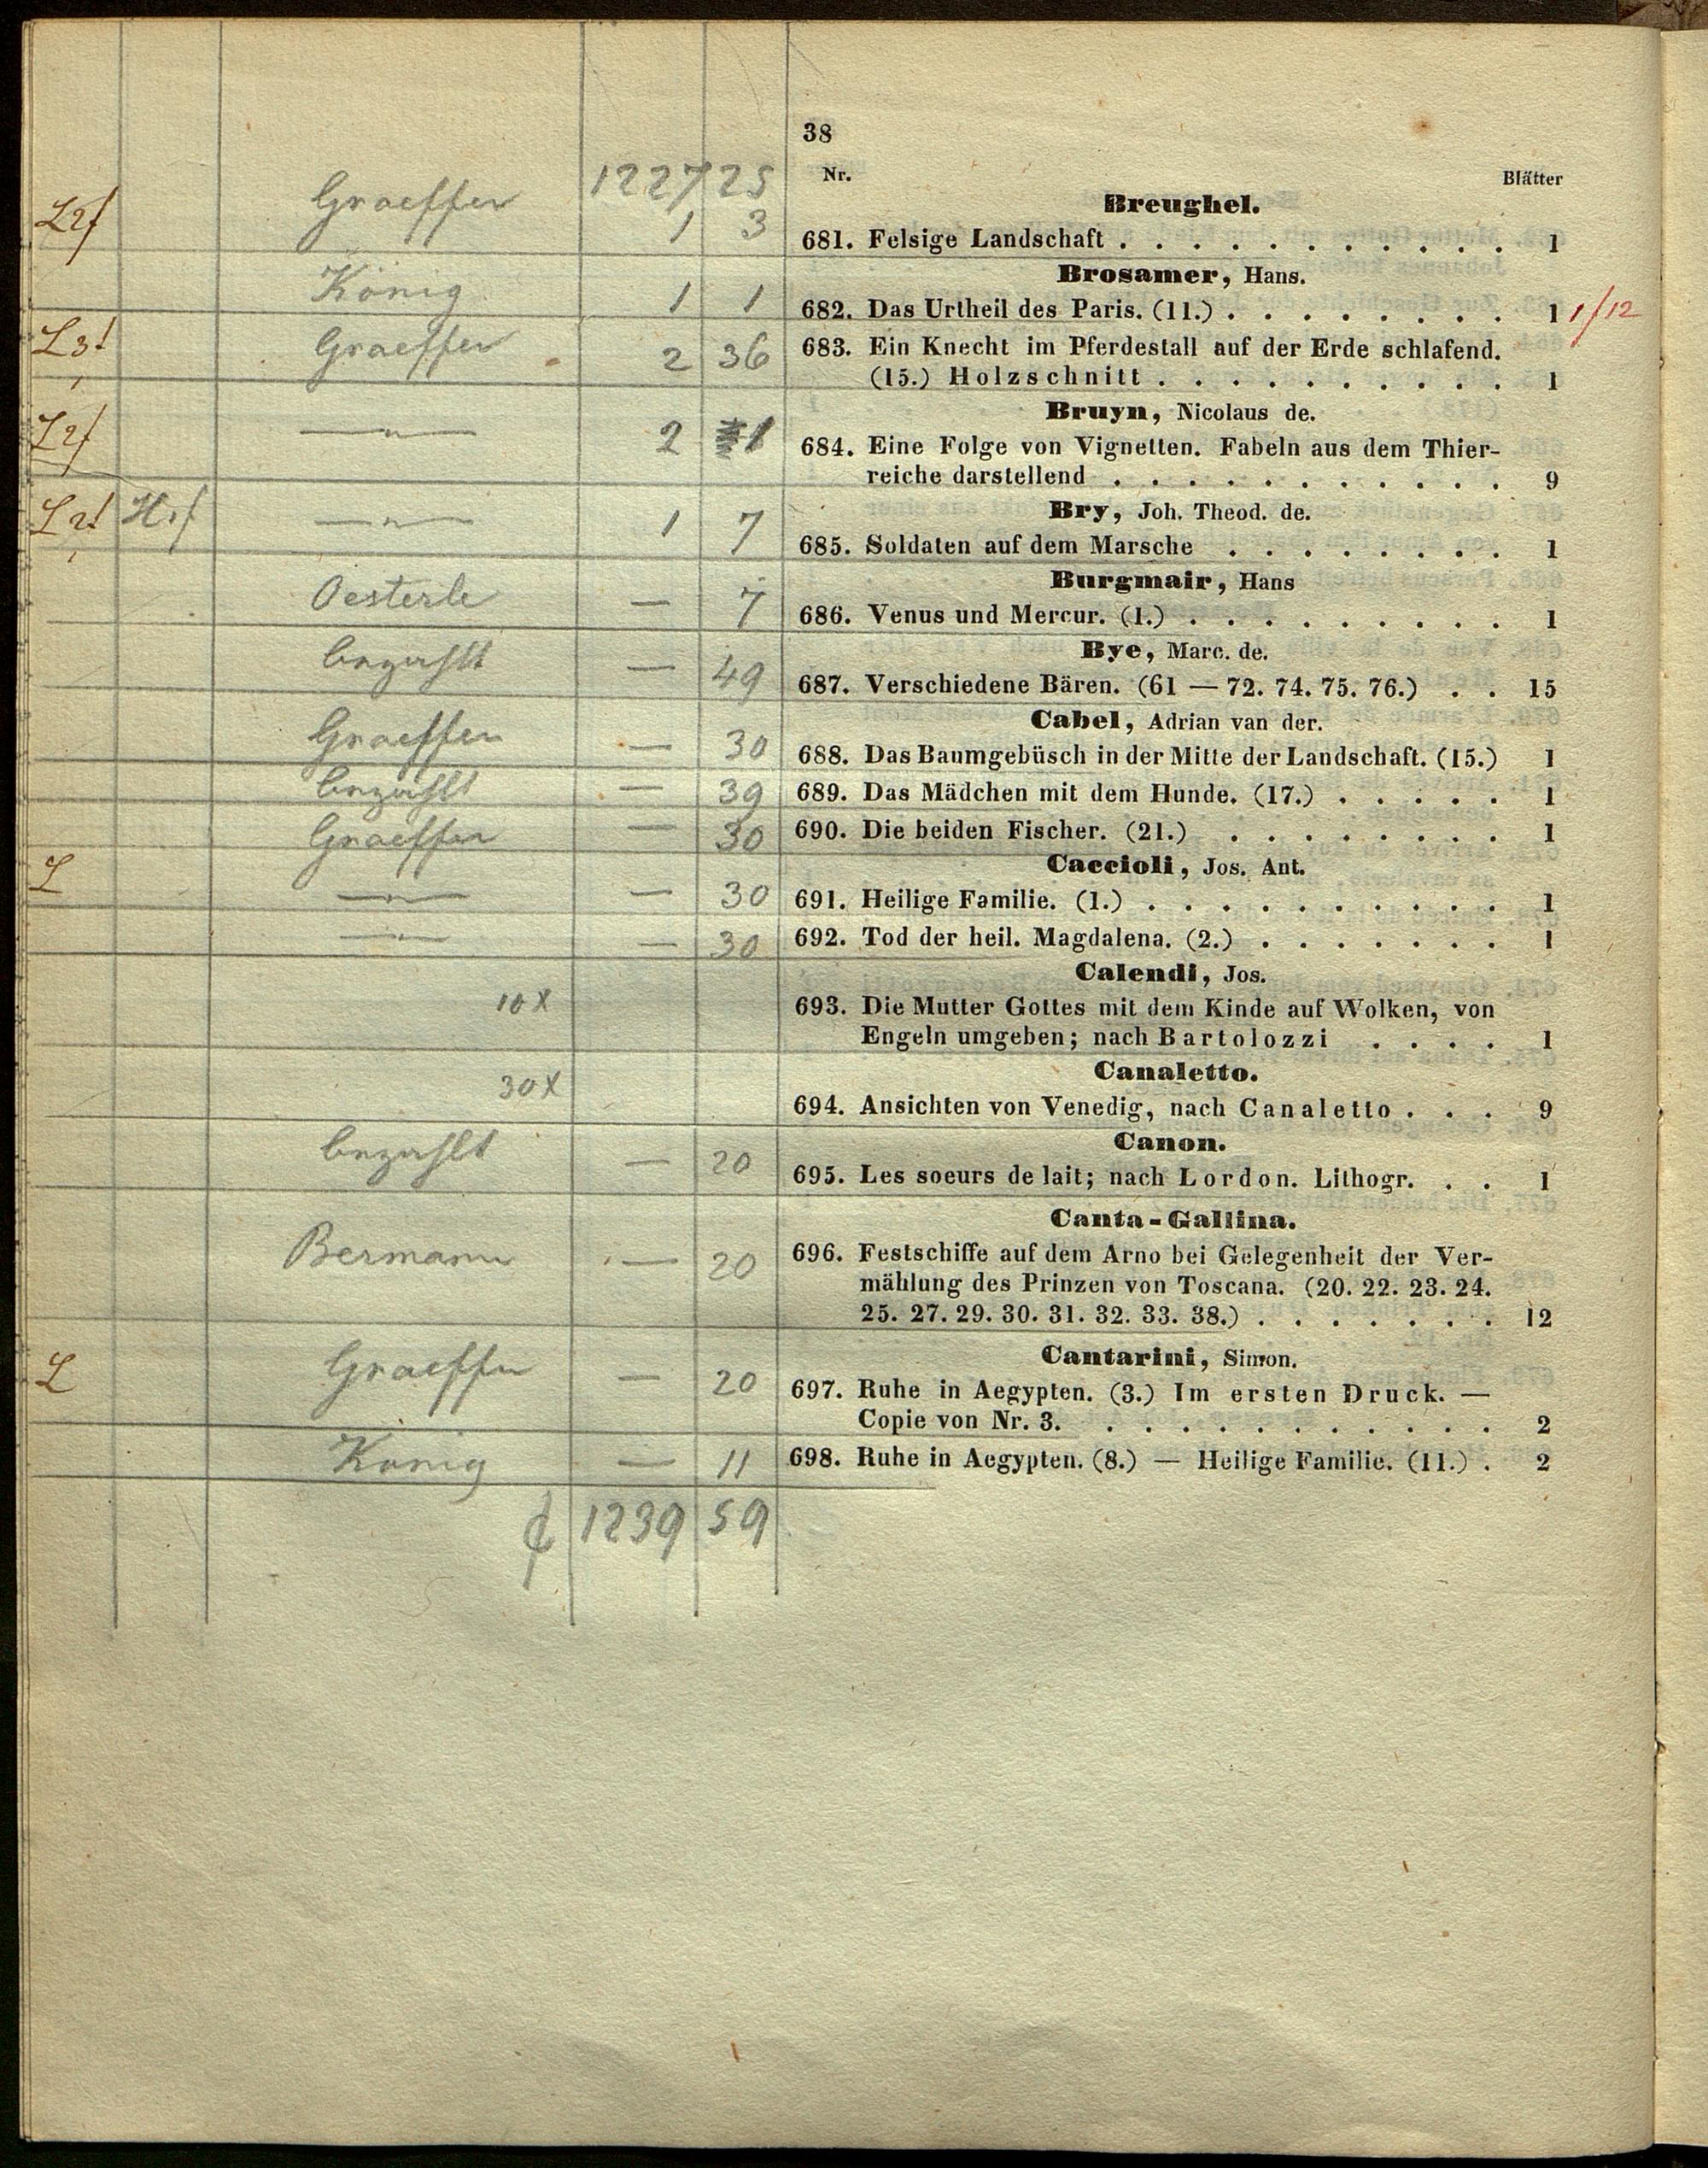 38
1227 25
Nr. Blätter
Breughel.
L2f Graeffer 1 3 681. Felsige Landschaft . . . . . . . . . . . 1
Brosamer, Hans.
König 1 1 682. Das Urtheil des Paris. (11.) . . . . . . . . 1 1/12
L3f Graeffer 2 36 683. Ein Knecht im Pferdestall auf der Erde schlafend.
(15.) Holzschnitt . . . . . . . . . . 1
Bruyn, Nicolaus de.
L2f —"— 2 1 684. Eine Folge von Vignetten. Fabeln aus dem Thier-
reiche darstellend . . . . . . . . . . . 9
Bry, Joh. Theod. de.
L2f H1f —"— 1 7 685. Soldaten auf dem Marsche . . . . . . . . 1
Burgmair, Hans
Oesterle — 7 686. Venus und Mercur. (1.) . . . . . . . . . 1
Bye, Marc. de.
bezahlt — 49 687. Verschiedene Bären. (61 — 72. 74. 75. 76.) . . 15
Cabel, Adrian van der.
Graeffer — 30 688. Das Baumgebüsch in der Mitte der Landschaft. (15.) 1
bezahlt — 39 689. Das Mädchen mit dem Hunde. (17.) . . . . . 1
Graeffer — 30 690. Die beiden Fischer. (21.) . . . . . . . . 1
Caccioli, Jos. Ant.
L —"— — 30 691. Heilige Familie. (1.) . . . . . . . . . . 1
—"— — 30 692. Tod der heil. Magdalena. (2.) . . . . . . . 1
Calendi, Jos.
10 x 693. Die Mutter Gottes mit dem Kinde auf Wolken, von
Engeln umgeben; nach Bartolozzi . . . . 1
Canaletto.
30 x 694. Ansichten von Venedig, nach Canaletto . . . 9
Canon.
bezahlt — 20 695. Les soeurs de lait; nach Lordon. Lithogr. . . 1
Canta-Gallina.
Bermann — 20 696. Festschiffe auf dem Arno bei Gelegenheit der Ver-
mählung des Prinzen von Toscana. (20. 22. 23. 24.
25. 27. 29. 30. 31. 32. 33. 38.) . . . . . . . 12
Cantarini, Simon.
L Graeffer — 20 697. Ruhe in Aegypten. (3.) Im ersten Druck. —
Copie von Nr. 3. . . . . . . . . . . . . 2
König — 11 698. Ruhe in Aegypten. (8.) — Heilige Familie. (11.) . 2
1239 59